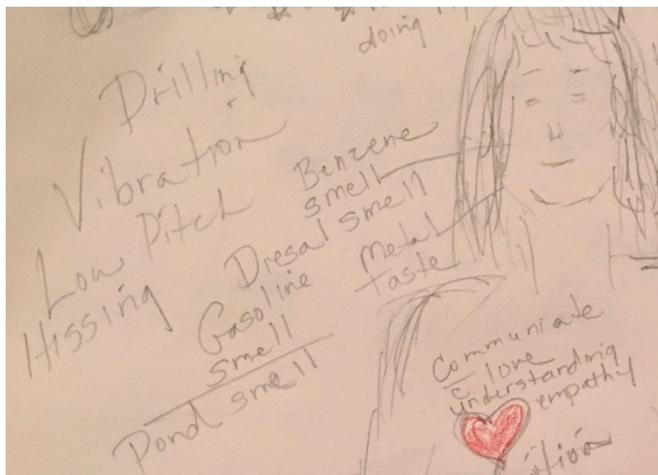 doing
Drilling
Vibration
Low Pitch
Hissing
Benzene
smell
Diesal smell
Gasoline
smell
Pond smell
Metal
taste
Communiate
c̄ love
understanding
empathy